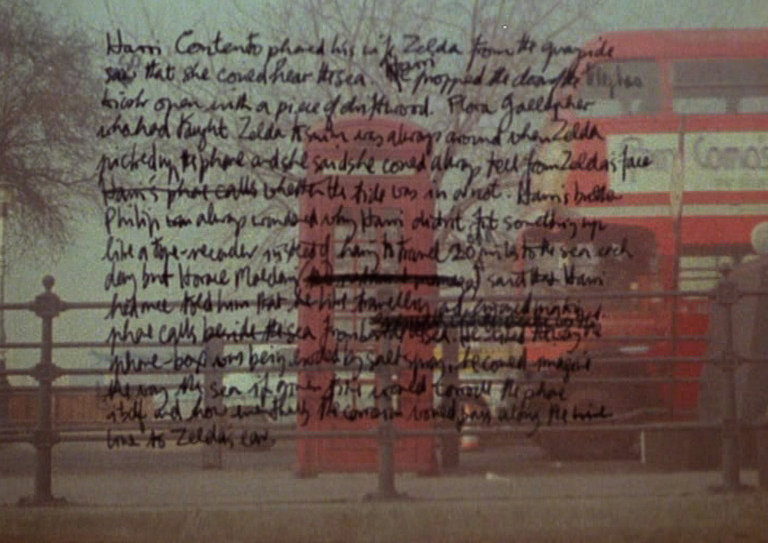 Harri Contento phoned his wife Zelda from the quayside
so that she could hear the sea. Harri propped the door of the telephone
kiosk open with a piece of driftwood. Flora Gallagher
who had taught Zelda to swim was always around when Zelda
picked up the phone and she said she could always tell from Zelda's face
Harri's phone calls whether the tide was in or not. Harri's brother
Philip was always wondered why Harri didn't fit something up
like a tape-recorder instead of having to travel 20 miles to the sea each
day but Horace Malden said that Harri
had once told him that he liked travelling
phone calls beside the sea from the sea. He liked the way the
phone-box was being eroded by salt spray. He could imagine
the way the sea if given time would corrode the phone
itself and how eventually the corrosion would pass along the wire
line to Zelda's ear.